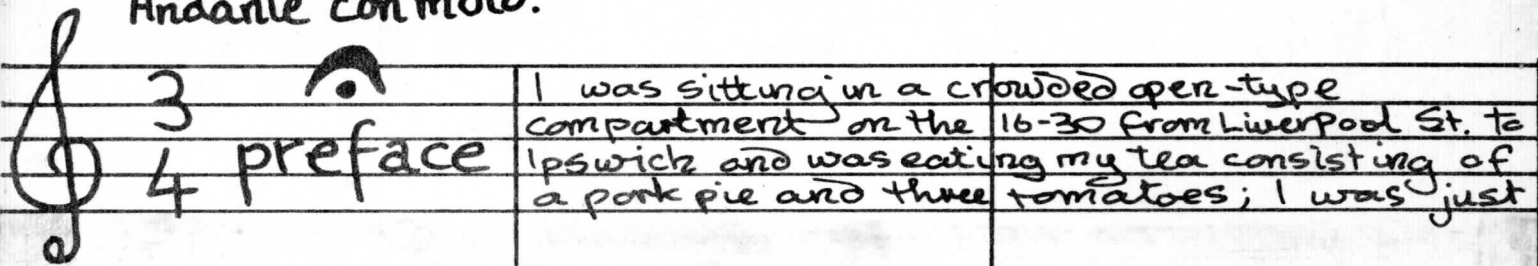 Andante con moto.
3
4
preface
I was sitting in a crowded open-type
compartment on the 16-30 from Liverpool St. to
Ipswich and was eating my tea consisting of
a pork pie and three tomatoes; I was just